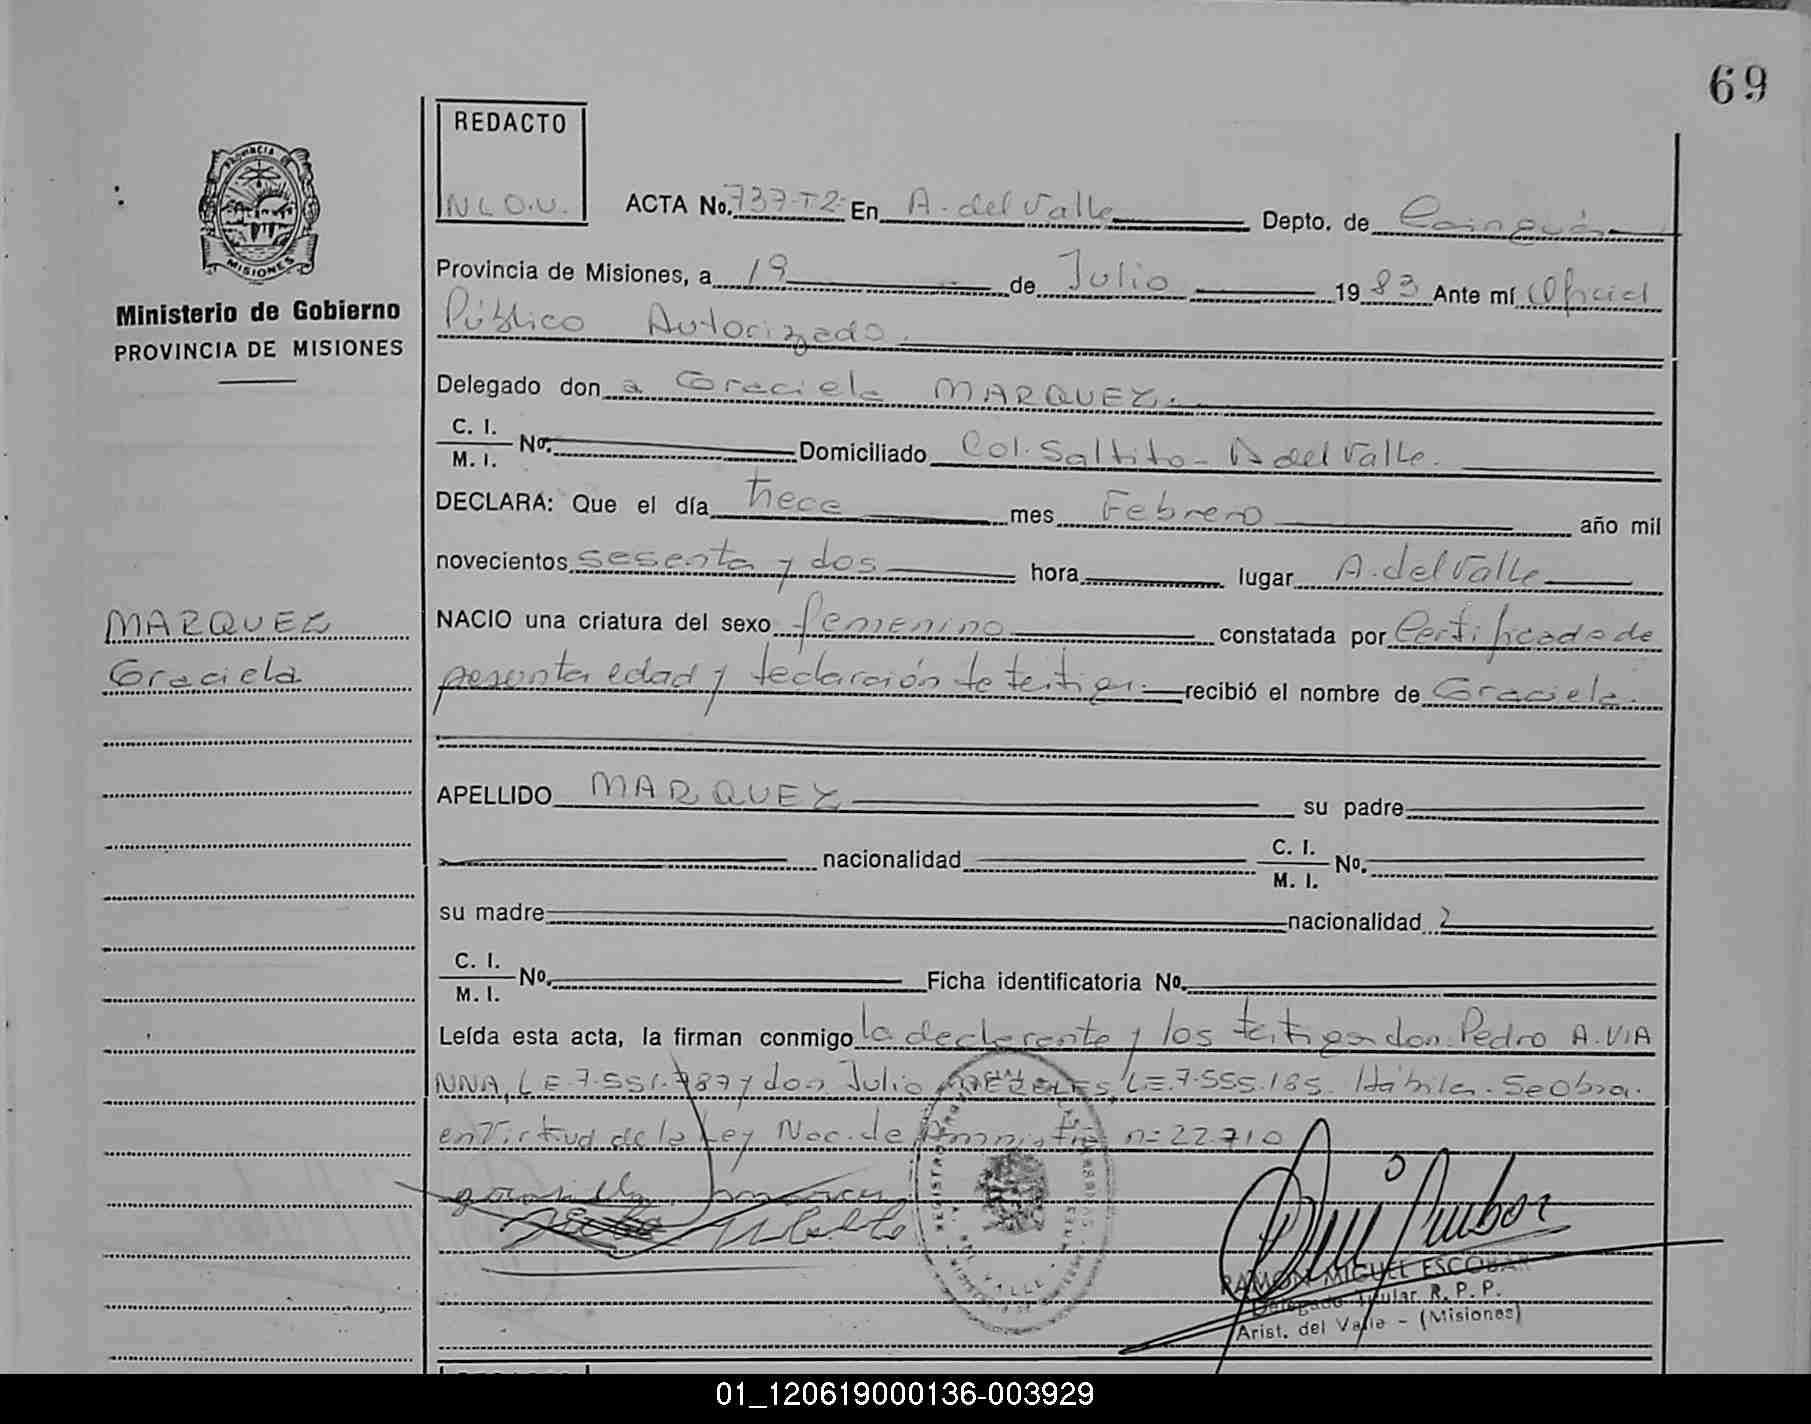 69
REDACTO
N.L.O.U.
ACTA No. 737-T2- En A. del Valle Depto. de Cainguás
PROVINCIA DE
MISIONES
Ministerio de Gobierno
PROVINCIA DE MISIONES
Provincia de Misiones, a 19 de Julio 1983 Ante mí Oficial
Público Autorizado.
Delegado don a Graciela MARQUEZ.
C. I.
M. I. No. Domiciliado Col. Saltito - A del Valle.
DECLARA: Que el día trece mes Febrero año mil
novecientos sesenta y dos hora lugar A. del Valle
MARQUEZ
Graciela
NACIO una criatura del sexo femenino constatada por Certificado de
presunta edad y declaración de testigos. recibió el nombre de Graciela.
APELLIDO MARQUEZ su padre
nacionalidad C. I.
M. I. No.
su madre nacionalidad
C. I.
M. I. No. Ficha identificatoria No.
Leída esta acta, la firman conmigo la declarante y los testigos don Pedro A. VIA
NNA, L E. 7.551.787 y don Julio L E. 7.555.185. Hábiles. Se Obra.
en Virtud de la Ley Nac. de Amnistía n= 22.710
RAMON MIGUEL ESCOBAR
Delegado Titular. R. P. P.
Arist. del Valle - (Misiones)
01_120619000136-003929